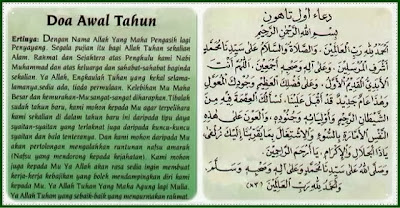 Doa Awal Tahun
Ertinya: Dengan Nama Allah Yang Maha Pengasih lagi
Penyayang. Segala pujian itu bagi Allah Tuhan sekalian
Alam. Rahmat dan Sejahtera atas Pengkulu kami Nabi
Muhammad dan atas keluarga dan sahabat-sahabat baginda
sekalian. Ya Allah, Engkaulah Tuhan yang kekal selama-
lamanya.sedia ada, tiada permulaan. Kelebihan Mu Maha
Besar dan kemurahan-Mu sangat-sangat diharapkan. Tibalah
sudah tahun baru, kami mohon kepada Mu agar terpelihara
kami sekalian di dalam tahun baru ini daripada tipu daya
syaitan-syaitan yang terlaknat juga daripada kuncu-kuncu
syaitan dan bala tenteranya. Dan kami mohon daripada Mu
akan pertolongan mengalahkan runtunan nafsu amarah
(Nafsu yang mendorong kepada kejahatan). Kami mohon
juga kepada Mu Ya Allah akan rasa sedia ingin membuat
kerja-kerja kebajikan yang boleh mendampingkan diri kami
kepada Mu. Ya Allah Tuhan Yang Maha Agung lagi Mulia.
Ya Allah Tuhan yang sebaik-baik yang mengurniakan rahmat.
دعاء اول تاهون
بسم الله الرحمن الرحيم
الحمد لله رب العالمين، والصلاة والسلام على سيدنا محمد
اشرف المرسلين، وعلى اله وصحبه اجمعين، اللهم انت
الابدي القديم الاول، وعلى فضلك العظيم وجودك المعول
وهذا عام جديد قد اقبل علينا، نسألك العصمة فيه من
الشيطان الرجيم واوليائه وجنوده، والعون على هذه
النفس الامارة بالسوء والاشتغال بما يقربنا اليك زلفى
يا ذا الجلال والاكرام، يا ارحم الراحمين،
وصلى الله على سيدنا محمد وعلى اله وصحبه وسلم
والحمد لله رب العالمين